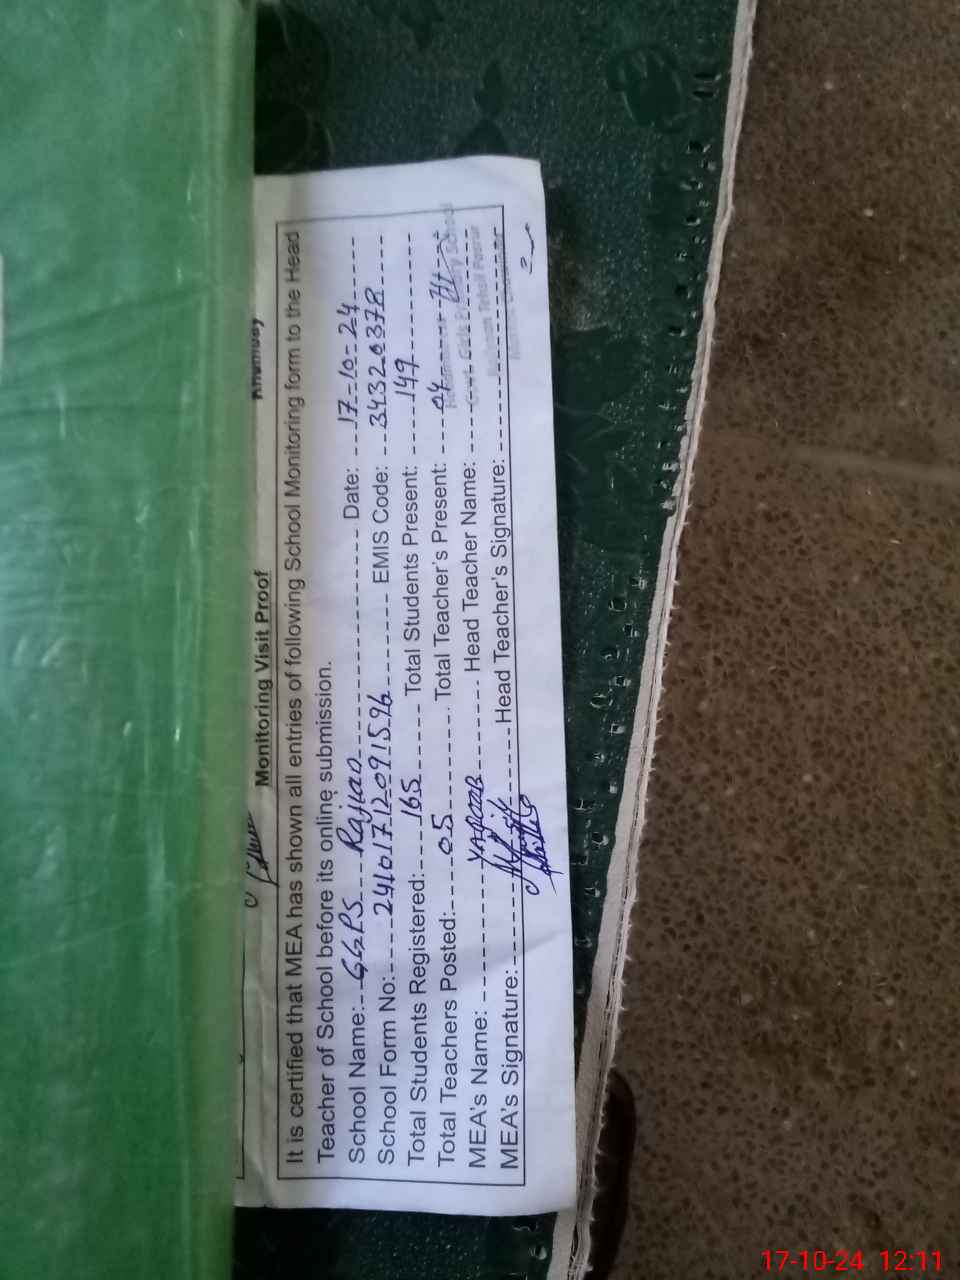 Monitoring Visit Proof
It is certified that MEA has shown all entries of following School Monitoring form to the Head
Teacher of School before its online submission.
School Name: GGPS Rajiao Date: 17-10-24
School Form No: 24101712091596 EMIS Code: 34320378
Total Students Registered: 165 Total Students Present: 149
Total Teachers Posted: 05 Total Teacher's Present: 04
MEA's Name: YAQOOB Head Teacher Name:
Govt. Girls Primary School
MEA's Signature: Head Teacher's Signature:
Tehsil Pasrur
17-10-24 12:11